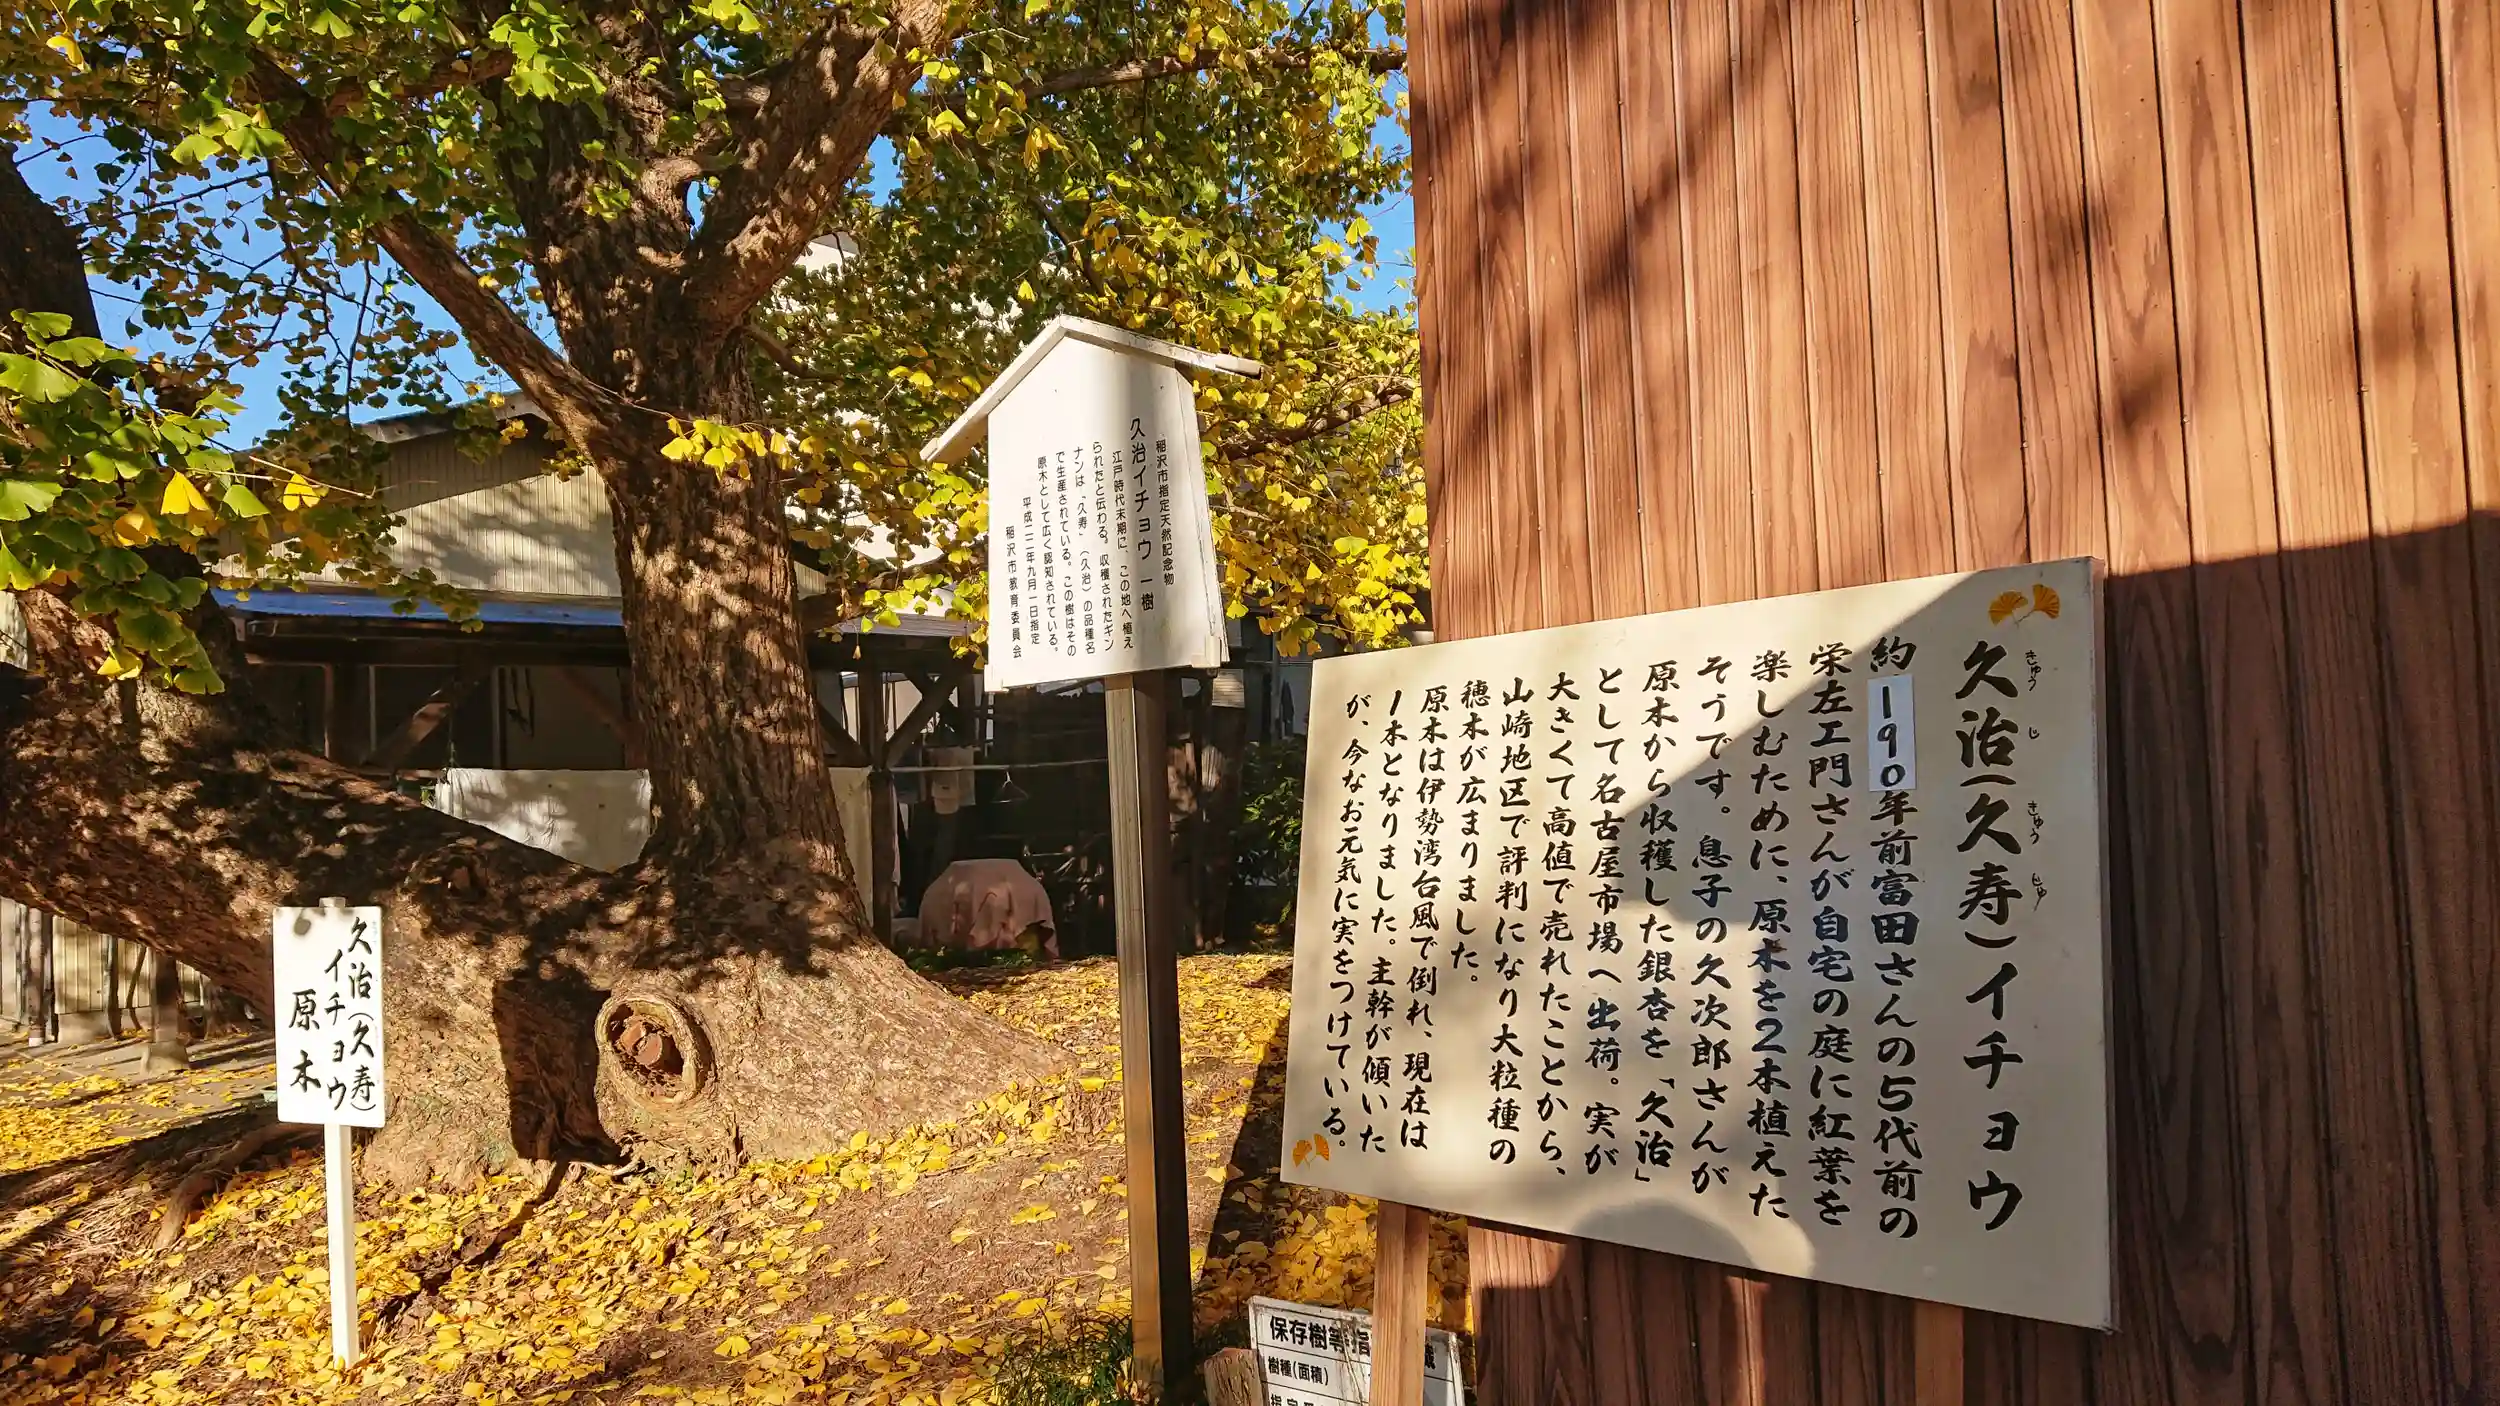 久治(久寿)イチョウ
きゅう じ きゅう じゅ
約190年前富田さんの5代前の
栄左エ門さんが自宅の庭に紅葉を
楽しむために、原木を2本植えた
そうです。息子の久次郎さんが
原木から収穫した銀杏を「久治」
として名古屋市場へ出荷。実が
大きくて高値で売れたことから、
山崎地区で評判になり大粒種の
穂木が広まりました。
原木は伊勢湾台風で倒れ、現在は
1本となりました。主幹が傾いた
が、今なお元気に実をつけている。
稲沢市指定天然記念物
久治イチョウ 一樹
江戸時代末期に、この地へ植え
られたと伝わる。収穫されたギン
ナンは「久寿」(久治)の品種名
で生産されている。この樹はその
原木として広く認知されている。
平成二二年九月一日指定
稲沢市教育委員会
久治(久寿)
イチョウ
原木
保存樹等指
樹種(面積)